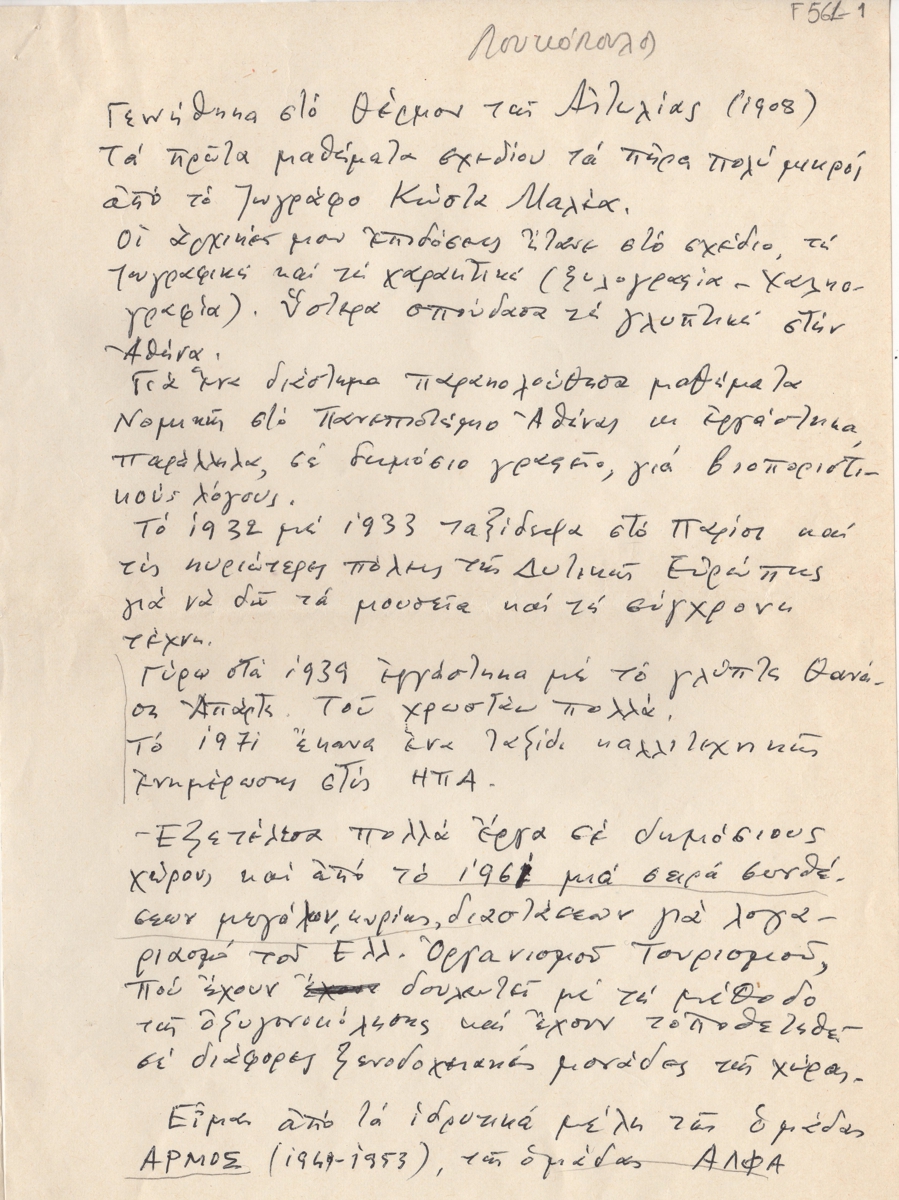 F 56 - 1
Λουκόπουλο
Γεννήθηκα στό Θέρμον τῆς Αἰτωλίας (1908)
Τά πρῶτα μαθήματα σχεδίου τά πῆρα πολύ μικρός
ἀπό τό ζωγράφο Κώστα Μαλέα.
Οἱ ἀρχικές μου ἐπιδόσεις ἤτανε στό σχέδιο, τή
ζωγραφική καί τή χαρακτική (ξυλογραφία - Χαλκο-
γραφία). Ὕστερα σπούδασα τή γλυπτική στήν
Ἀθήνα.
Γιά ἕνα διάστημα παρακολούθησα μαθήματα
Νομικῆς στό Πανεπιστήμιο Ἀθήνας κι ἐργάστηκα,
παράλληλα, σέ δημόσιο γραφεῖο, γιά βιοποριστι-
κούς λόγους.
Τό 1932 μέ 1933 ταξίδεψα στό Παρίσι καί
τίς κυριώτερες πόλεις τῆς Δυτικῆς Εὐρώπης
γιά νά δῶ τά μουσεῖα καί τή σύγχρονη
τέχνη.
Γύρω στά 1939 ἐργάστηκα μέ τό γλύπτη Θανά-
ση Ἀπάρτη. Τοῦ χρωστάω πολλά.
Τό 1971 ἔκανα ἕνα ταξίδι καλλιτεχνικῆς
ἐνημέρωσης στίς ΗΠΑ.
- Ἐξετέλεσα πολλά ἔργα σέ δημόσιους
χώρους καί ἀπό τό 1961 μιά σειρά συνθέ-
σεων μεγάλων, κυρίως, διαστάσεων γιά λογα-
ριασμό τοῦ Ἑλλ. Ὀργανισμοῦ Τουρισμοῦ,
πού ἔχουν δουλευτεῖ μέ τή μέθοδο
τῆς ὀξυγονοκόλλησης καί ἔχουν τοποθετηθεῖ
σέ διάφορες ξενοδοχειακές μονάδες τῆς χώρας.
Εἶμαι ἀπό τά ἱδρυτικά μέλη τῆς ὁμάδας
ΑΡΜΟΣ (1949-1953), τῆς ὁμάδας ΑΛΦΑ